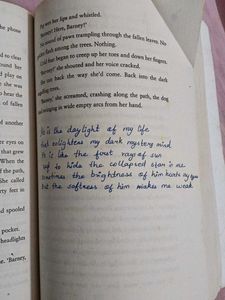 he phone
Pip wet her lips and whistled.
'Barney! Here, Barney!'
No sound of paws trampling through the fallen leaves. No
flash among the trees. Nothing.
Cold fear began to creep up her toes and down her fingers.
'Barney!' she shouted and her voice cracked.
ran back the way she'd come. Back into the dark
'Barney,' she screamed, crashing along the path, the dog
swinging in wide empty arcs from her hand.
He is the daylight of my life
that enlightens my dark mystery mind
He is like the first rays of sun
up to hide the collapsed star in me
Sometimes the brightness of him hurts my eyes
but the softness of him makes me weak
d to clear
around her
play on
she was
hear the
of fallen
er eyes on
When the
f the path,
She called
rty feet in
nd spooled
pocket.
headlights
'Barney,